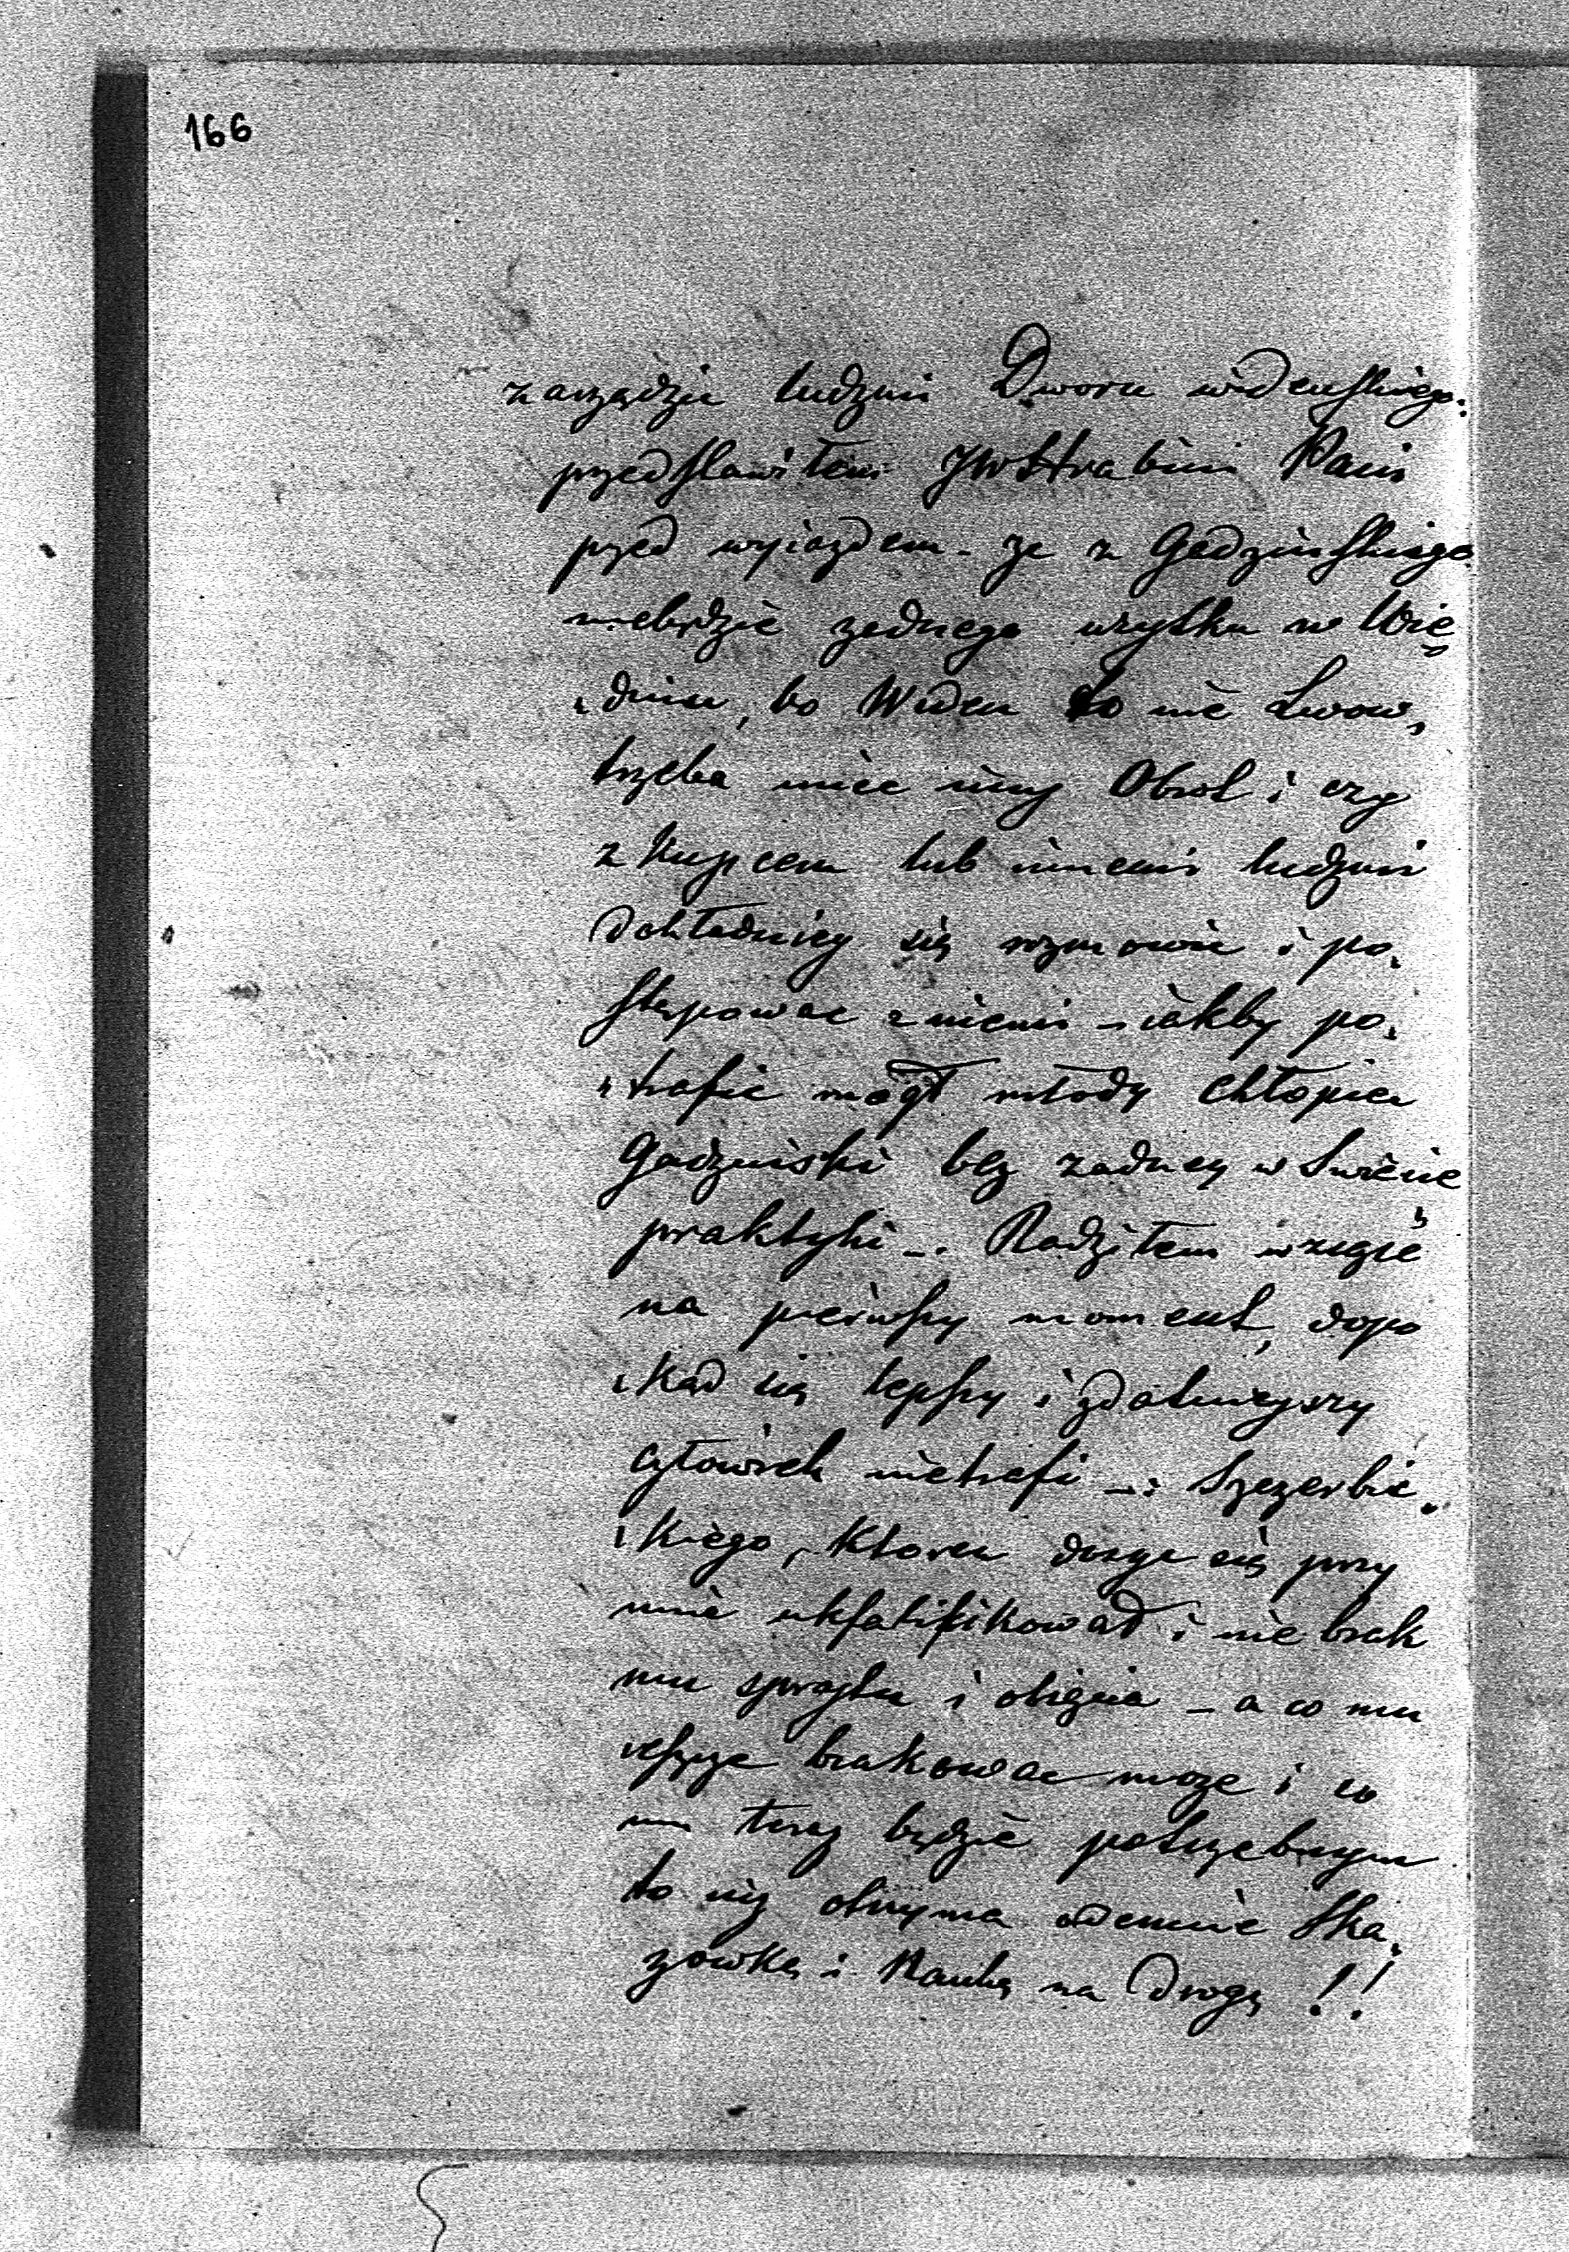 166
zarządzie ludzmi Dworu widenskiego.
przedstawiłem JW Hrabini Pani
przed wyiazdem - ze z Godzinskiego
niebędzie zednego uzytku w Wie
dniu, bo Widen to nie Lwow,
trzeba miec inny Obrot i czy
z kupcem lub innemi ludzmi
dokładniey się rozmowic i po,
stępowac z niemi - iakby po,
trafic mogł młody chłopiec
Godzinski bez zadney w Swiecie
praktyki -. Radziłem wziąsc
na pierwszy moment, dopo
kad się lepszy i zdatnieyszy
człowiek nietrafi -: Szczerbic
kiego, ktoren dosyc się przy
mnie ukfalifikował i nie brak
mu sprytu i obięcia - a co mu
ieszcze brakowac moze i co
mu teraz będzie potrzebnym
to się otrzyma odemnie Ska,
zowkę i Naukę na Drogę !!